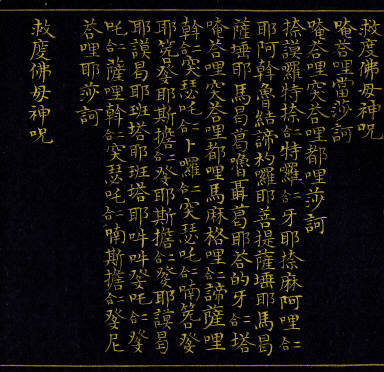 救度佛母神呪
唵荅哩當莎訶
唵荅哩突荅哩都哩莎訶
捺謨囉特捺合二特囉合二牙耶捺麻阿哩合二
耶阿斡魯結諦杓囉耶菩提薩埵耶馬曷
薩埵耶馬曷葛嚕聶曷耶荅的牙合二塔
唵荅哩突荅哩都哩馬麻格哩合二諦薩哩
斡合二突瑟吒合二卜囉合二突瑟吒合二喃笿癹
耶笿癹耶斯擔合二癹耶斯擔合二癹耶謨曷
耶謨曷耶班塔耶班塔耶吽吽癹吒合二癹
吒合二薩哩斡合二突瑟吒合二喃斯擔合二癹尼
荅哩耶莎訶
救度佛母神呪